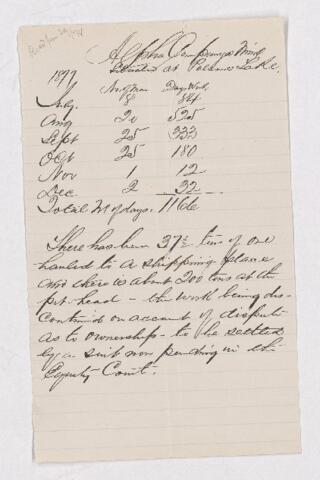 Alpha Company's Mine
Situated at Palmer Lake.
1897 No of Men Days Work
8 84
Aug 20 525
Sept 25 333
Oct 25 180
Nov 1 12
Dec 2 32
Total No of days. 1166
There has been 37½ tons of ore
hauled to a shipping place
and there is about 200 tons at the
pit-head – the work being dis-
continued on account of dispute
as to ownership – to be settled
by a suit now pending in the
Equity Court.